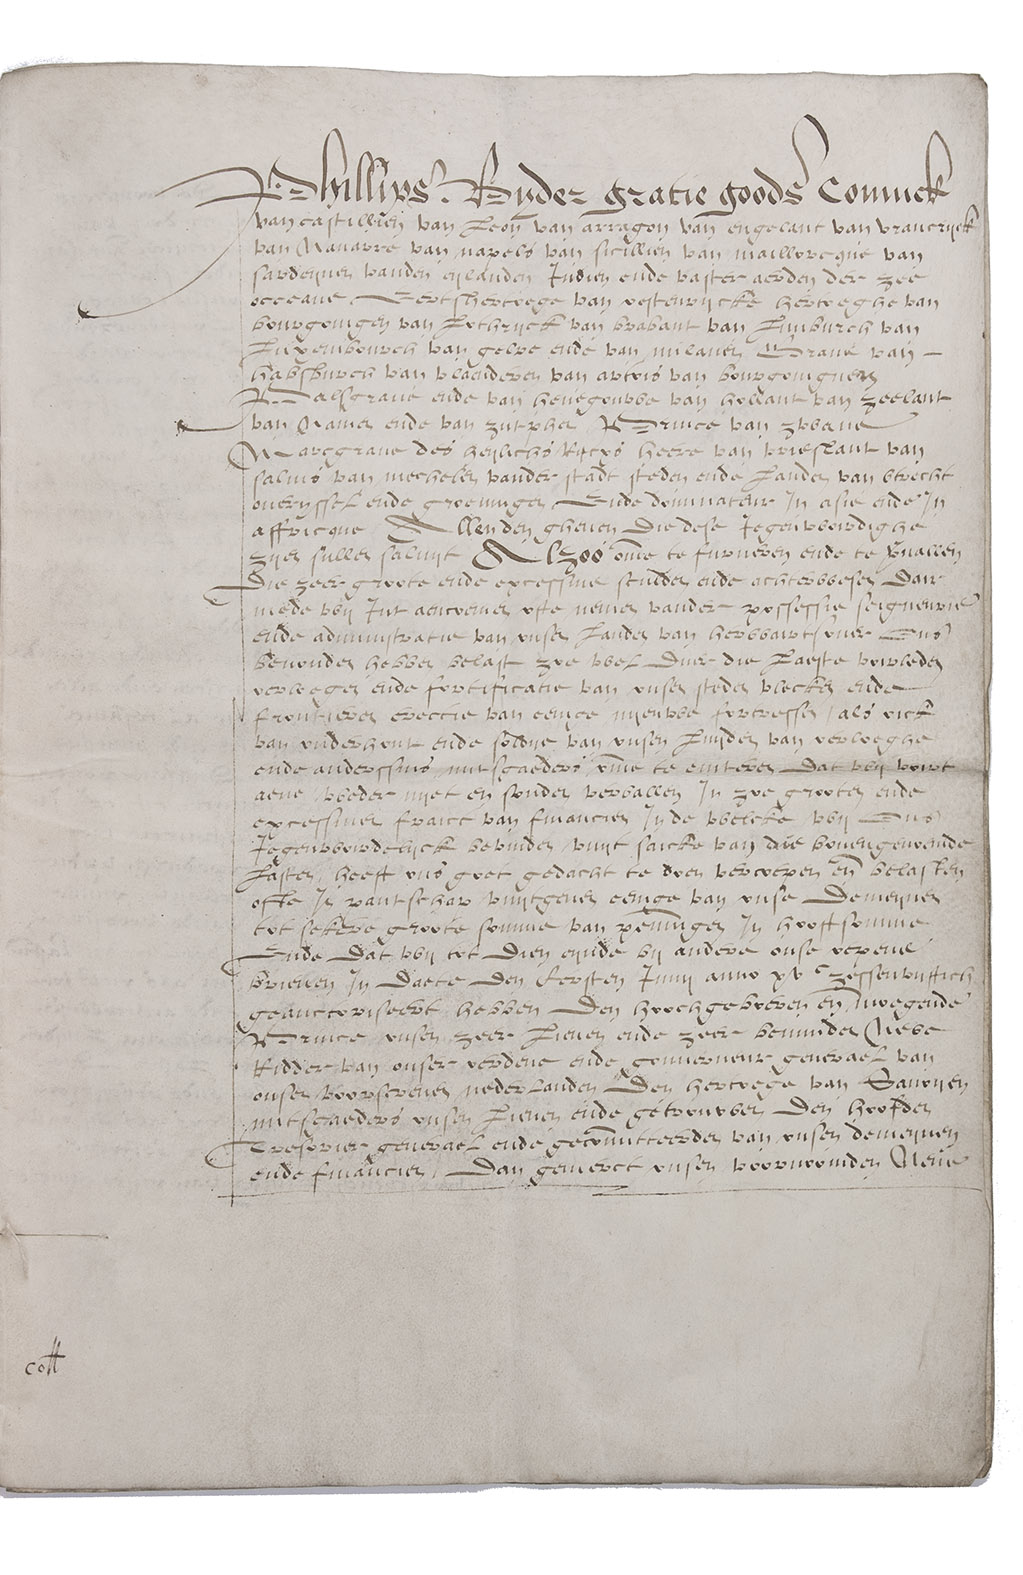 Phillips Byder gratie goods Coninck
van castillien van Leon van arragon van engelant van vranckryck
van Navarre van napels van sicillien van maillorcque van
sardeynen vanden eylanden Indien ende vaster aerden der zee
occeane Eertshertoege van oistenrycke hertoeghe van
bourgoingen van Lothryck van brabant van Limburch van
Luxembourch van gelre ende van milanen Grave van
habsburch van vlaenderen van artois van bourgoingnen
Palsgrave ende van henegouwe van hollant van zeelant
van Namen ende van zutphen Prince van zwave
Marcgrave des heylichs Rycx heere van vrieslant van
salins van mechelen vander stadt steden ende Landen van utrecht
overyssel ende groeningen Ende dominateur In asie ende In
affricque Allen den ghenen die dese Jegenwoordighe
zyen sullen saluyt Alzoo ome te furneren ende te
Die zeer groote ende excessive schulden ende achterwesen Dair
mede wy Int aencomen ofte nemen vander possessie seigneurie
ende administratie van onsen Landen van herwaertsover Ons
bevonden hebben belast zoe wel duer die Laeste voirleden
oirloegen ende fortificatie van onsen steden vlecken ende
frontieren erectie van eenige nyeuwe fortressen als oick
van onderhout ende souldye van onsen Luyden van oirloeghe
ende anderssins mitsgaeders ome te Dat wy voirt
aene weder nyet en souden vervallen In zoe grooten ende
excessiven van financien In de welcke wy Ons
Jegenwoordelyck bevinden vuyt saicke van die bovengenoemde
Lasten heeft ons goet gedacht te doen vercoopen en belasten
ofte In pantschap vuytgeven eenige van onse Demeynen
tot sekere groote somme van penningen In hooftsomme
Ende Dat wy tot Dien eynde by andere onse opene
brieven In Daete Den Eersten Junij anno xv c zessenvyftich
geauctoriseert hebben Den hoochgeboren en mogende
Prince onsen zeer Lieven ende zeer beminden Neve
Ridder van onser ordene ende gouverneur generael van
onsen voorscreven nederlanden Den hertoege van Savoyen
mitsgaeders onsen Lieven ende getrouwen Den hoofden
Tresorier generael ende gecommitteerden van onsen demeynen
ende financien Dan gemerct onsen voornoemden Neve
coll